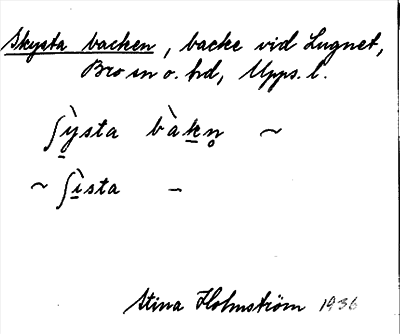 Skysta backen, backe vid Lugnet,
Bro sn o. hd, Upps. l.
ʃỳ̱sta bàḵn̥ ~
~ ʃì̱sta –
Stina Holmström 1936